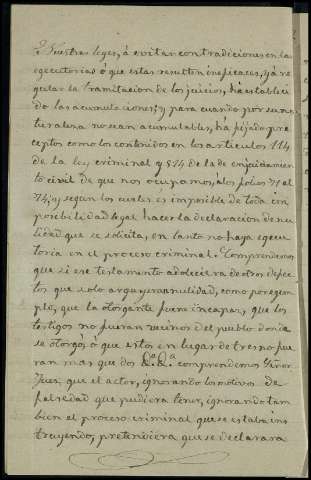 Nuestras leyes, á evitar contradiciones en las
egecutorias ó que estas resulten ineficaces, y á re
gular la tramitacion de los juicios, há estableci
do las acumulaciones; y para cuando por su na
turaleza no sean acumulables, há fijado pre
ceptos como los contenidos en los articulos 114
de la ley criminal y 514 de la de enjuiciamiento
civil de que nos ocupamos, á los folios 71 al
74; y segun los cuales es imposible de toda im
posibilidad legal hacer la declaracion de nu
lidad que se solicita, en tanto no haya egecu
toria en el proceso criminal. Comprendemos
que si ese testamento adoleciera de otros defec
tos que solo arguyan nulidad, como por egem
plo, que la otorgante fuera incapaz, que los
testigos no fueran vecinos del pueblo donde
se otorgó, ó que estos en lugar de tres no fue
ran mas que dos &.ª &.ª comprendemos Señor
Juez, que el actor, ignorando los motivos de
falsedad que pudiera tener, ignorando tam
bien el proceso criminal que se estaba ins
truyendo, pretendiera que se declarara